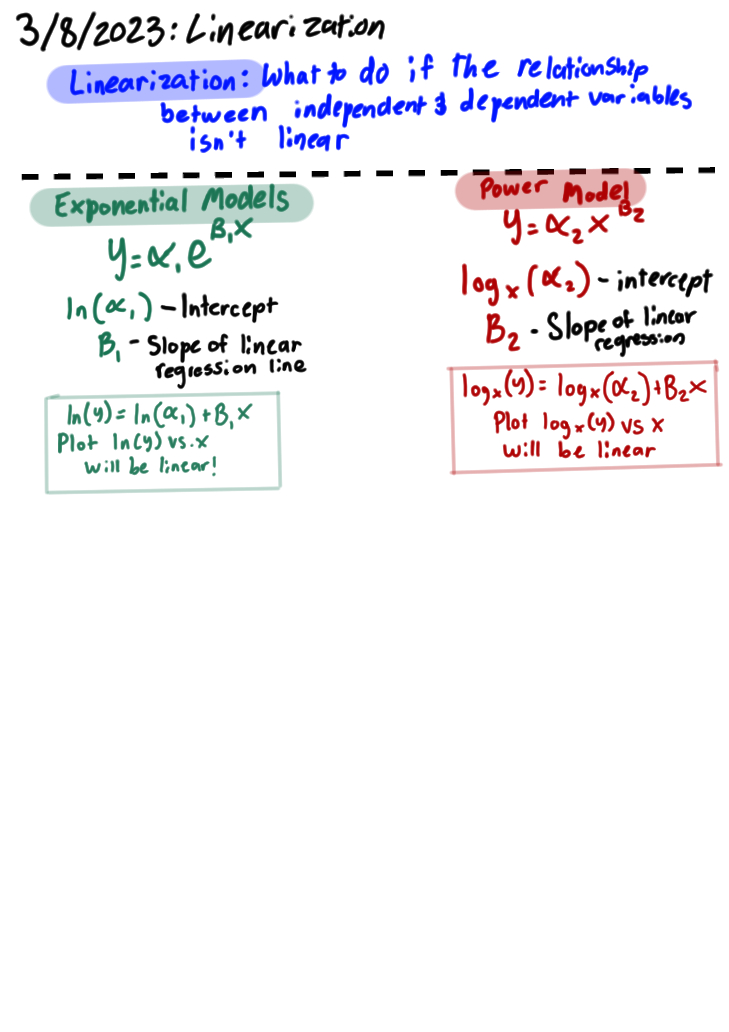 3/8/2023: Linearization
Linearization: What to do if the relationship
between independent & dependent variables
isn't linear
Exponential Models
y=α₁e^B₁x
ln(α₁) - Intercept
B₁ - Slope of linear
regression line
ln(y) = ln(α₁) + B₁x
Plot ln(y) vs. x
will be linear!
Power Model
y=α₂x^B₂
logₓ(α₂) - intercept
B₂ - Slope of linear
regression
logₓ(y) = logₓ(α₂)+B₂x
Plot logₓ(y) vs x
will be linear